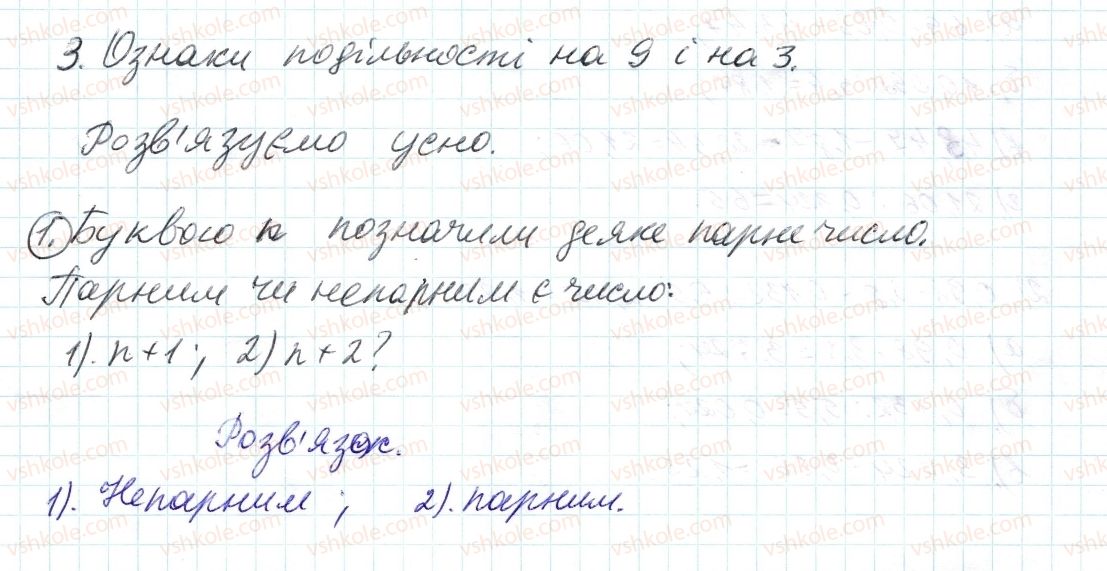 3. Ознаки подільності на 9 і на 3.
Розв'язуємо усно.
1. Буквою n позначили деяке парне число.
Парним чи непарним є число:
1). n+1; 2) n+2?
Розв'язок.
1). Непарним; 2). парним.